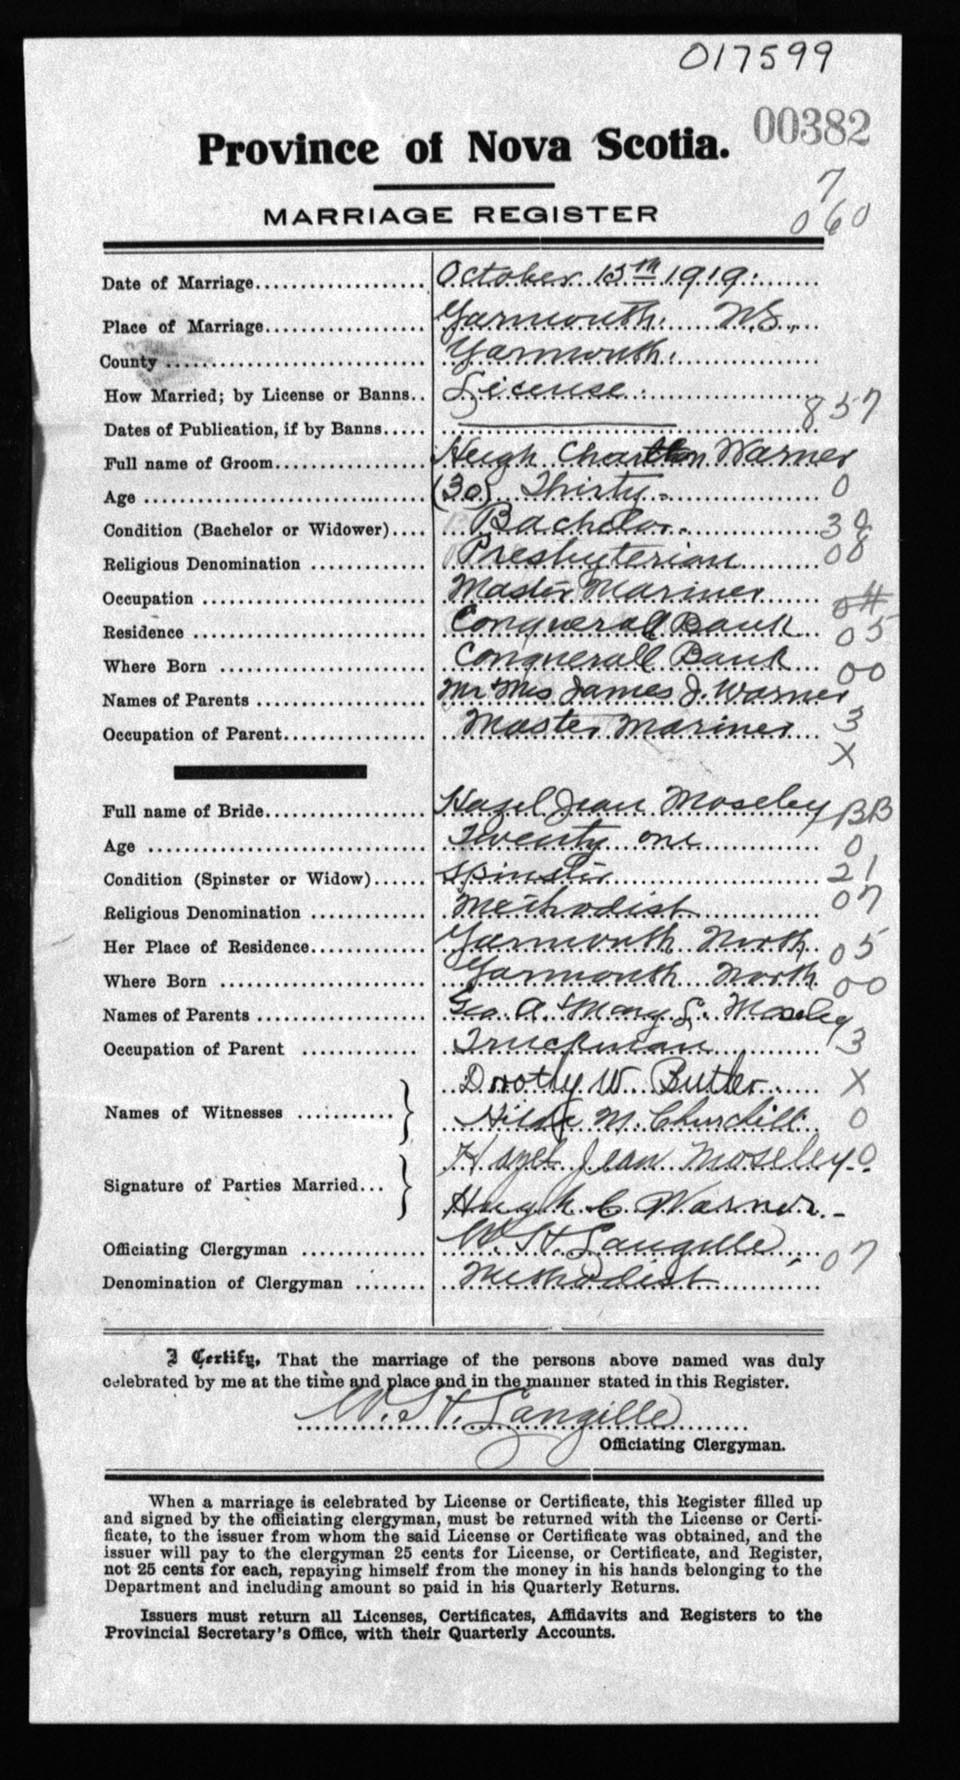 017599
00382
Province of Nova Scotia.
7
060
MARRIAGE REGISTER
Date of Marriage.................. October 15th 1919.
Place of Marriage.................. Yarmouth. N.S.
County .................. Yarmouth.
How Married; by License or Banns.. License.
857
Dates of Publication, if by Banns.....
Full name of Groom.................. Hugh Warner
Age .................. (30) Thirty. 0
Condition (Bachelor or Widower).... Bachelor. 30
Religious Denomination ............ Presbyterian 08
Occupation .................. Master Mariner 04
Residence .................. Conquerall Bank 05
Where Born .................. Conquerall Bank 00
Names of Parents .................. Mr & Mrs James J. Warner
Occupation of Parent.................. Master Mariner 3
X
Full name of Bride.................. Hazel Jean Moseley BB
Age .................. Twenty one 0
Condition (Spinster or Widow)...... Spinster 21
Religious Denomination ............ Methodist 07
Her Place of Residence............ Yarmouth North 05
Where Born .................. Yarmouth North 00
Names of Parents .................. Geo. A & Mary L. Moseley
Occupation of Parent ............ Truckman 3
Dorothy W Butler X
Names of Witnesses ...........} Hilda M. Churchill 0
Hazel Jean Moseley 0
Signature of Parties Married...} Hugh C Warner.
Officiating Clergyman ............ W. H. Langille 07
Denomination of Clergyman ........ Methodist
I Certify, That the marriage of the persons above named was duly
celebrated by me at the time and place and in the manner stated in this Register.
W. H. Langille
Officiating Clergyman.
When a marriage is celebrated by License or Certificate, this Register filled up
and signed by the officiating clergyman, must be returned with the License or Certi-
ficate, to the issuer from whom the said License or Certificate was obtained, and the
issuer will pay to the clergyman 25 cents for License, or Certificate, and Register,
not 25 cents for each, repaying himself from the money in his hands belonging to the
Department and including amount so paid in his Quarterly Returns.
Issuers must return all Licenses, Certificates, Affidavits and Registers to the
Provincial Secretary's Office, with their Quarterly Accounts.